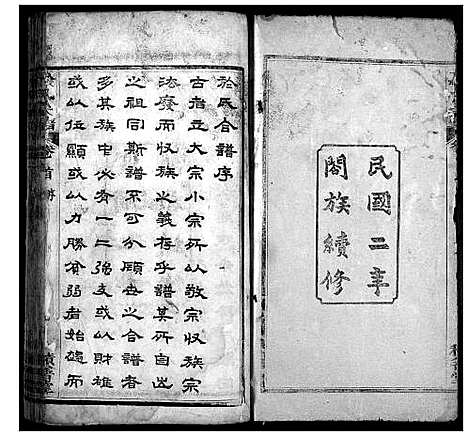 民國二年
闔族續修
於氏合譜序
古者立大宗小宗所以敬宗收族宗
法廢而收族之義存乎譜其所自出
之祖同斯譜不可分顧世之合譜者
多其族中必有一二強支或以財雄
或以位顯或以力勝貧弱者始遠而